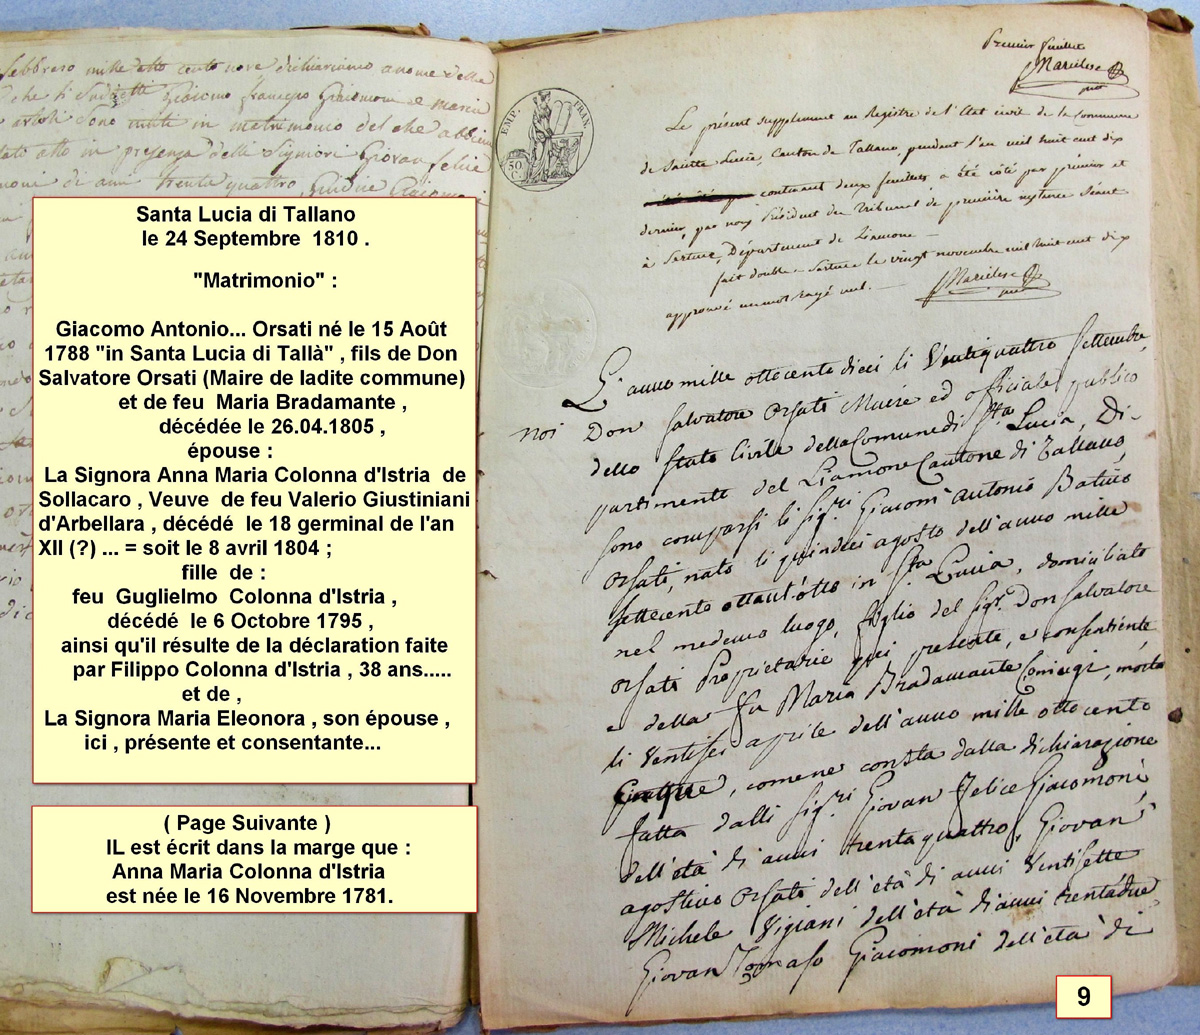 febbrero mille otto cento nove dichiariamo a nome della
che li Sudetti Giacomo Francesco Giacomoni e Maria
sono uniti in matrimonio del che abbiam
atto in presenza delli Signori Giovan felice
moni di anni trenta quattro, Giudice
Santa Lucia di Tallano
le 24 Septembre 1810 .
"Matrimonio" :
Giacomo Antonio... Orsati né le 15 Août
1788 "in Santa Lucia di Tallà" , fils de Don
Salvatore Orsati (Maire de ladite commune)
et de feu Maria Bradamante ,
décédée le 26.04.1805 ,
épouse :
La Signora Anna Maria Colonna d'Istria de
Sollacaro , Veuve de feu Valerio Giustiniani
d'Arbellara , décédé le 18 germinal de l'an
XII (?) ... = soit le 8 avril 1804 ;
fille de :
feu Guglielmo Colonna d'Istria ,
décédé le 6 Octobre 1795 ,
ainsi qu'il résulte de la déclaration faite
par Filippo Colonna d'Istria , 38 ans.....
et de ,
La Signora Maria Eleonora , son épouse ,
ici , présente et consentante...
( Page Suivante )
IL est écrit dans la marge que :
Anna Maria Colonna d'Istria
est née le 16 Novembre 1781.
Premier feuillet
EMP. FRAN.
50 C.
Le présent Supplement au Registre de l'Etat civil de la Commune
de Sainte Lucie, Canton de Tallano, pendant l'an mil huit cent dix
contenant deux feuillets a été côté par premier et
dernier, par nous Président du Tribunal de première instance Séant
à Sartene, Département de Liamone
fait double à Sartene le vingt novembre mil huit cent dix
approuvé un mot rayé nul.
L'anno mille ottocento dieci li Ventiquattro Settembre,
noi Don Salvatore Orsati Maire ed officiale publico
dello Stato Civile della Comune di Sta Lucia, Di-
partimento del Liamone Cantone di Tallano,
sono comparsi li sigri Giacom' Antonio
Orsati, nato li quindeci agosto dell'anno mille
settecento ottant'otto in Sta Lucia, domiciliato
nel medemo luogo, figlio del sigr Don Salvatore
Orsati Proprietario qui presente, e consentiente,
e della fu Maria Bradamante Coniugi, morta
li Ventisei aprile dell'anno mille ottocento
Cinque, comene consta dalla dichiarazione
fatta dalli sigri Giovan Felice Giacomoni,
dell'età di anni trentaquattro, Giovan
agostino Orsati dell'età di anni Ventisette
Michele Vigiani dell'età d'anni trentadue
Giovan Tomaso Giacomoni dell'età di
9